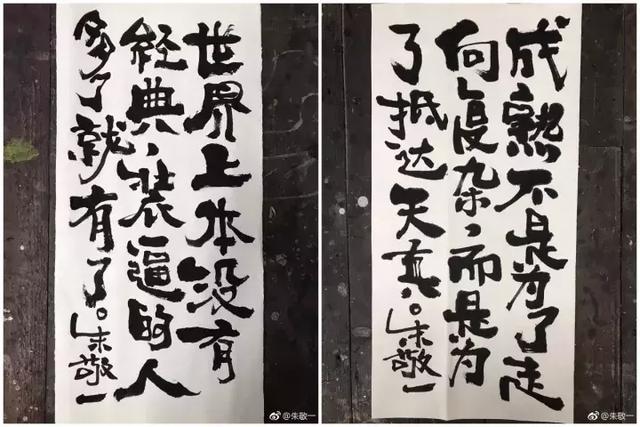 世界上本没有
经典,装逼的人
多了就有了。朱敬一
@朱敬一
成熟不是为了走
向复杂,而是为
了抵达天真。朱敬一
@朱敬一